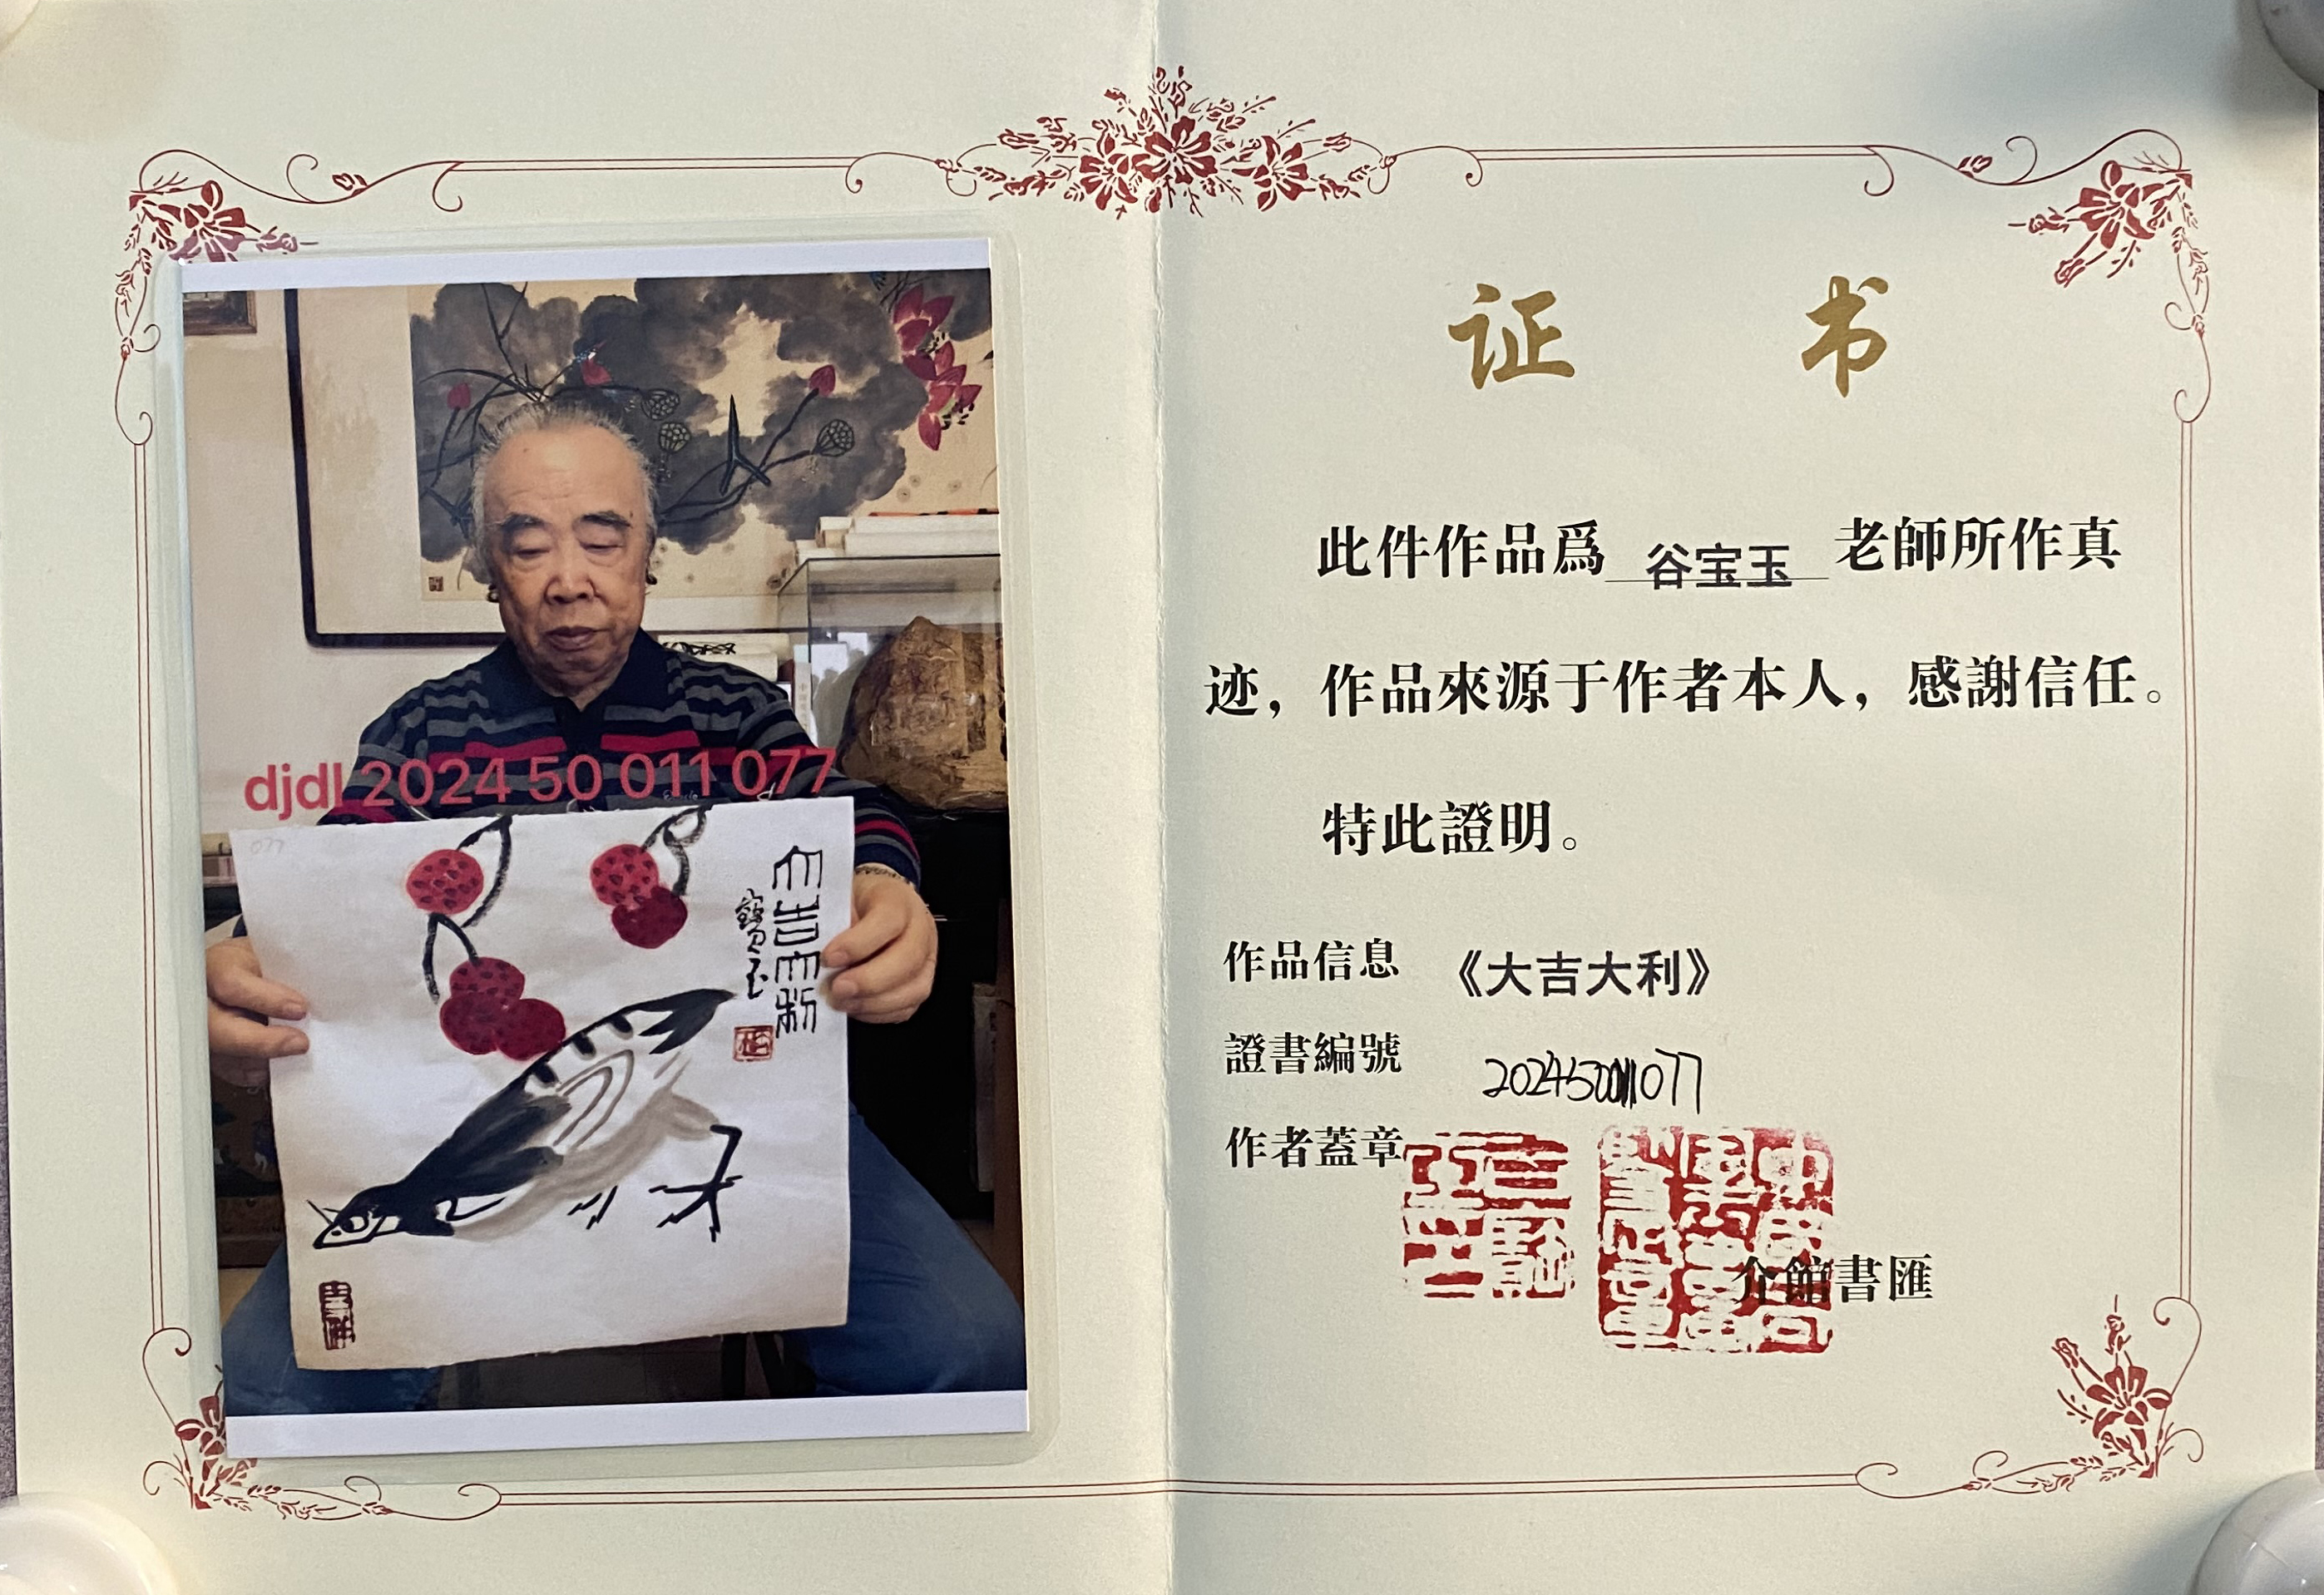 djdl 2024 50 011 077
077
大吉大利
寶玉
证 书
此件作品爲 谷宝玉 老師所作真
迹，作品來源于作者本人，感謝信任。
特此證明。
作品信息 《大吉大利》
證書編號 202450011077
作者蓋章
介館書匯